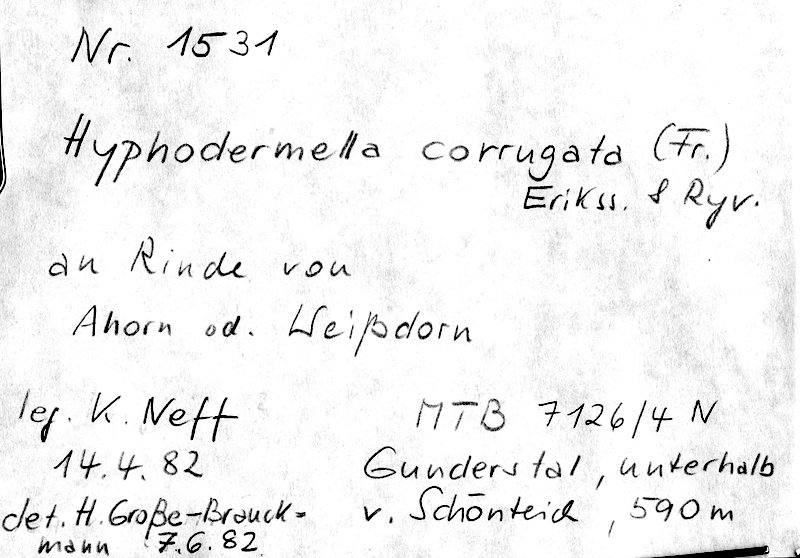 Nr. 1531
Hyphodermella corrugata (Fr.)
Erikss. & Ryv.
an Rinde von
Ahorn od. Weißdorn
leg. K. Neff
14.4.82
det. H. Große-Brauck-
mann 7.6.82
MTB 7126/4 N
Gunderstal, unterhalb
v. Schönteich, 590 m